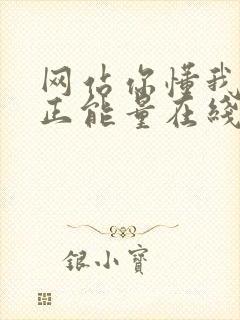 网站你懂我
正能量在线
银小宝